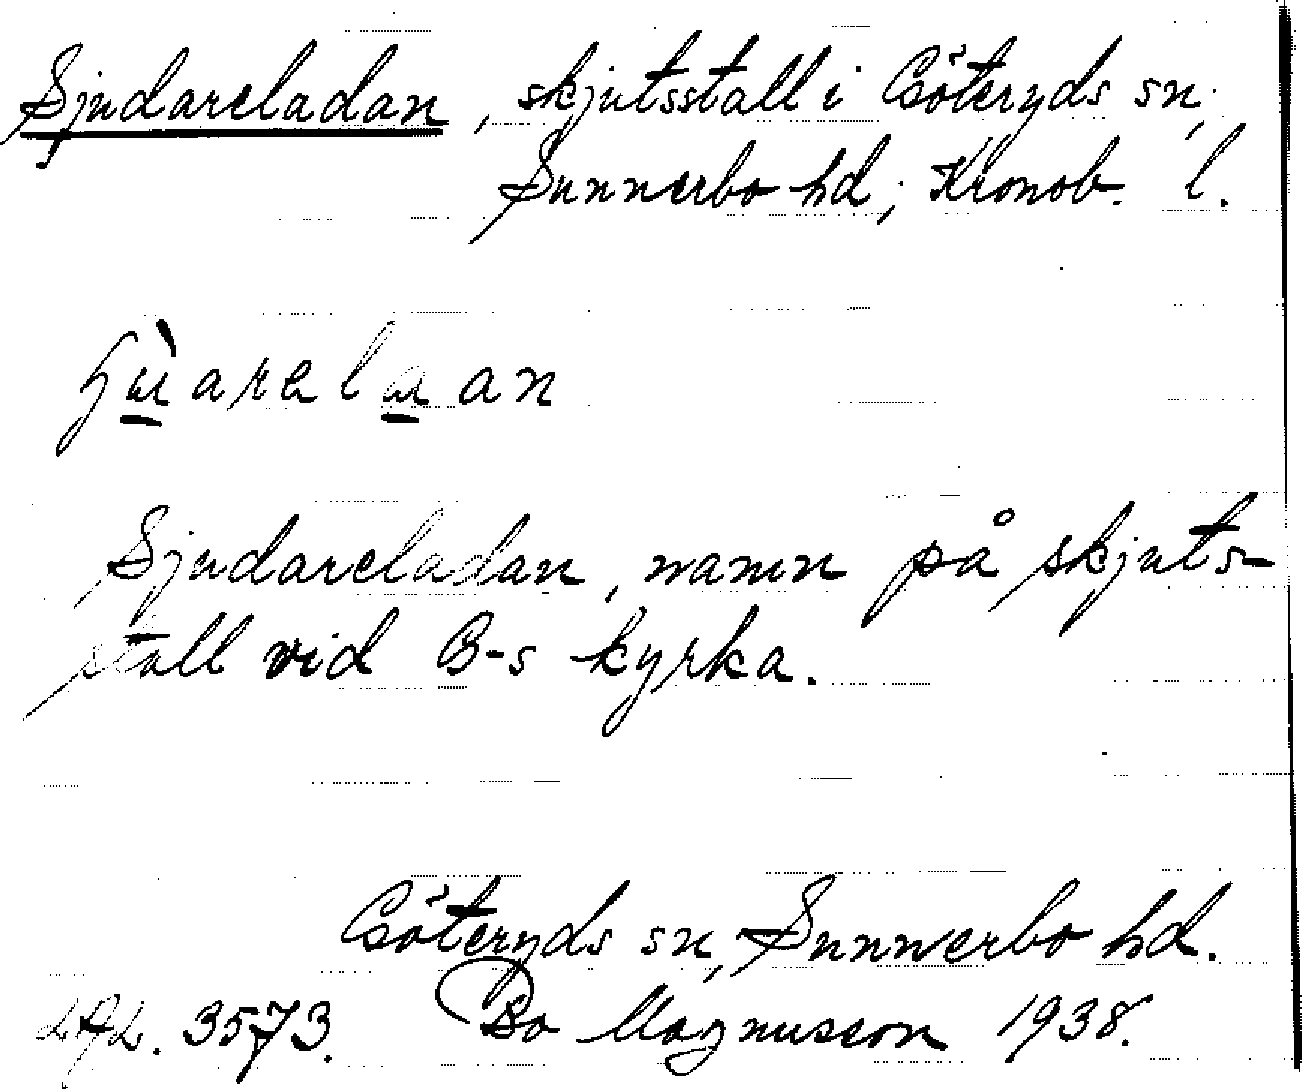 Sjudareladan, skjutsstall i Göteryds sn,
Sunnerbo hd, Kronob. l.
Sjudareladan, namn på skjuts-
stall vid G-s kyrka.
Göteryds sn, Sunnerbo hd.
LAL. 3573. Bo Magnusson 1938.